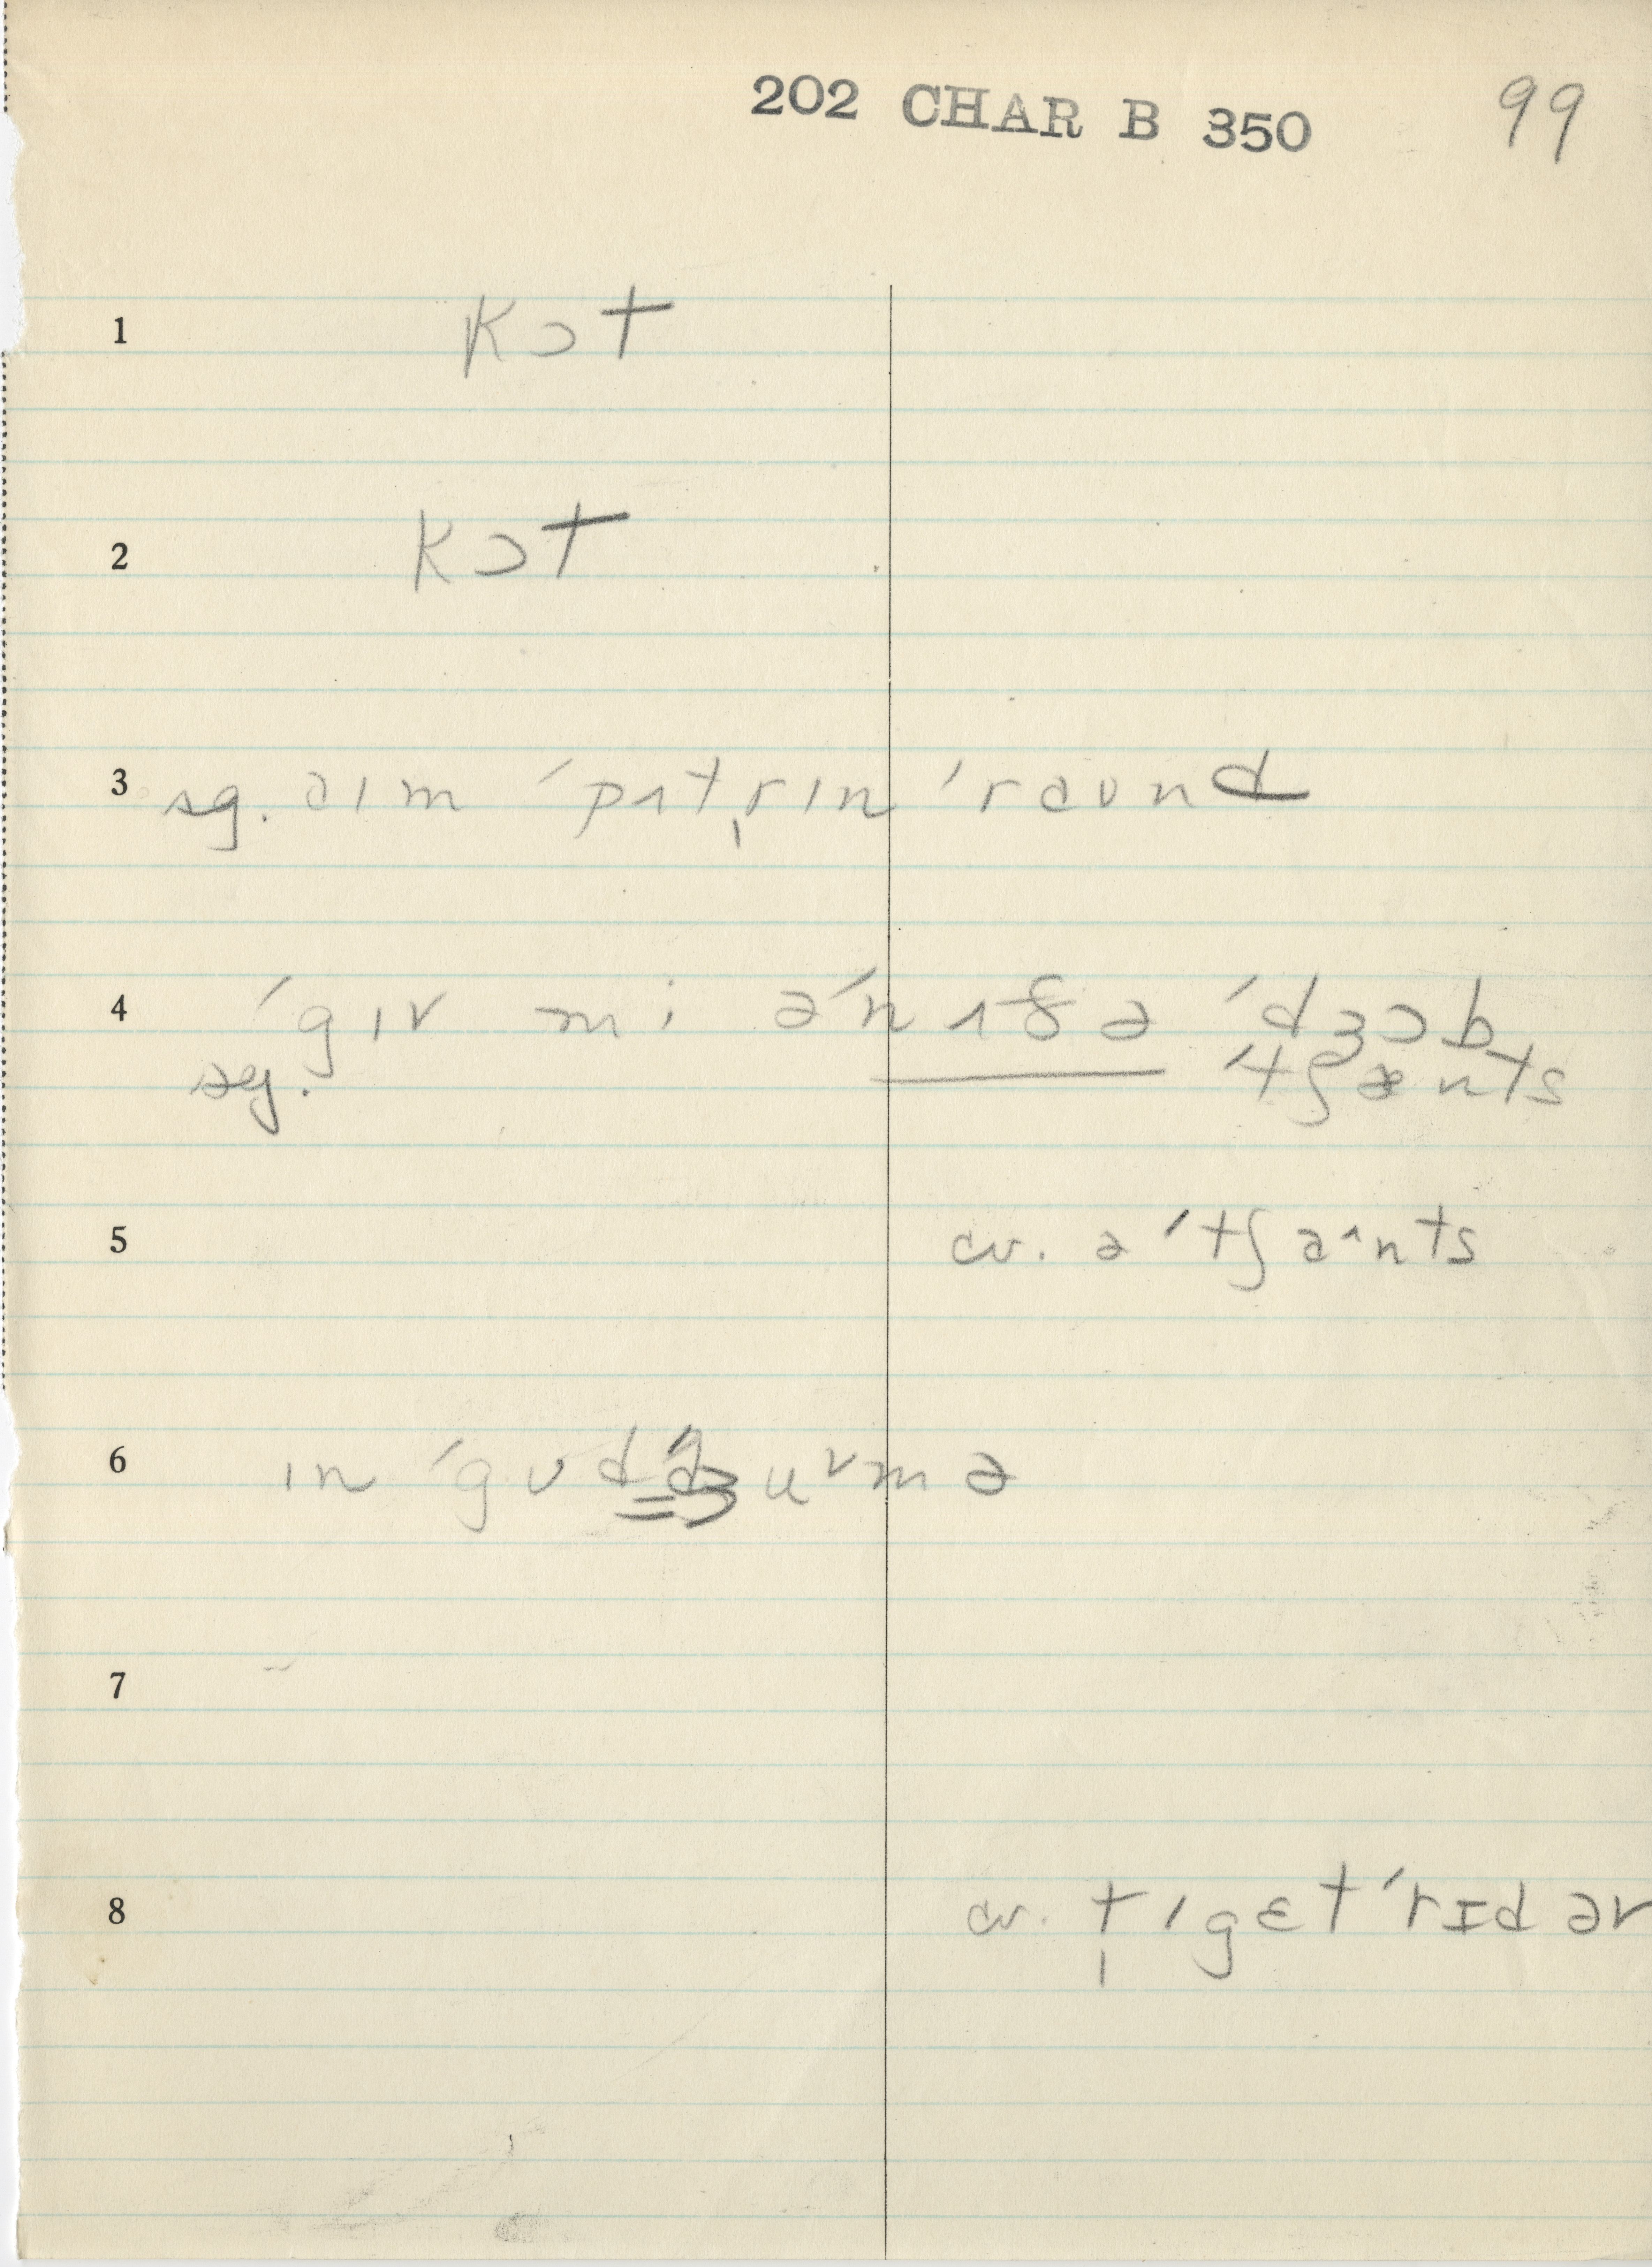 202 CHAR B 350 99
1 kɔt
2 kɔt
3 sg. aɪm ˈpʌtˌrɪn ˈraʊnd
4 ˈgɪv mi əˈnʌðə ˈdʒɔb
sg. ˈtʃænts
5 cv. ə ˈtʃa^nts
6 ɪn ˈgʊd ˈdʒu˅mə
7
8 cv. t ˈgɛt ˈrɪd əv